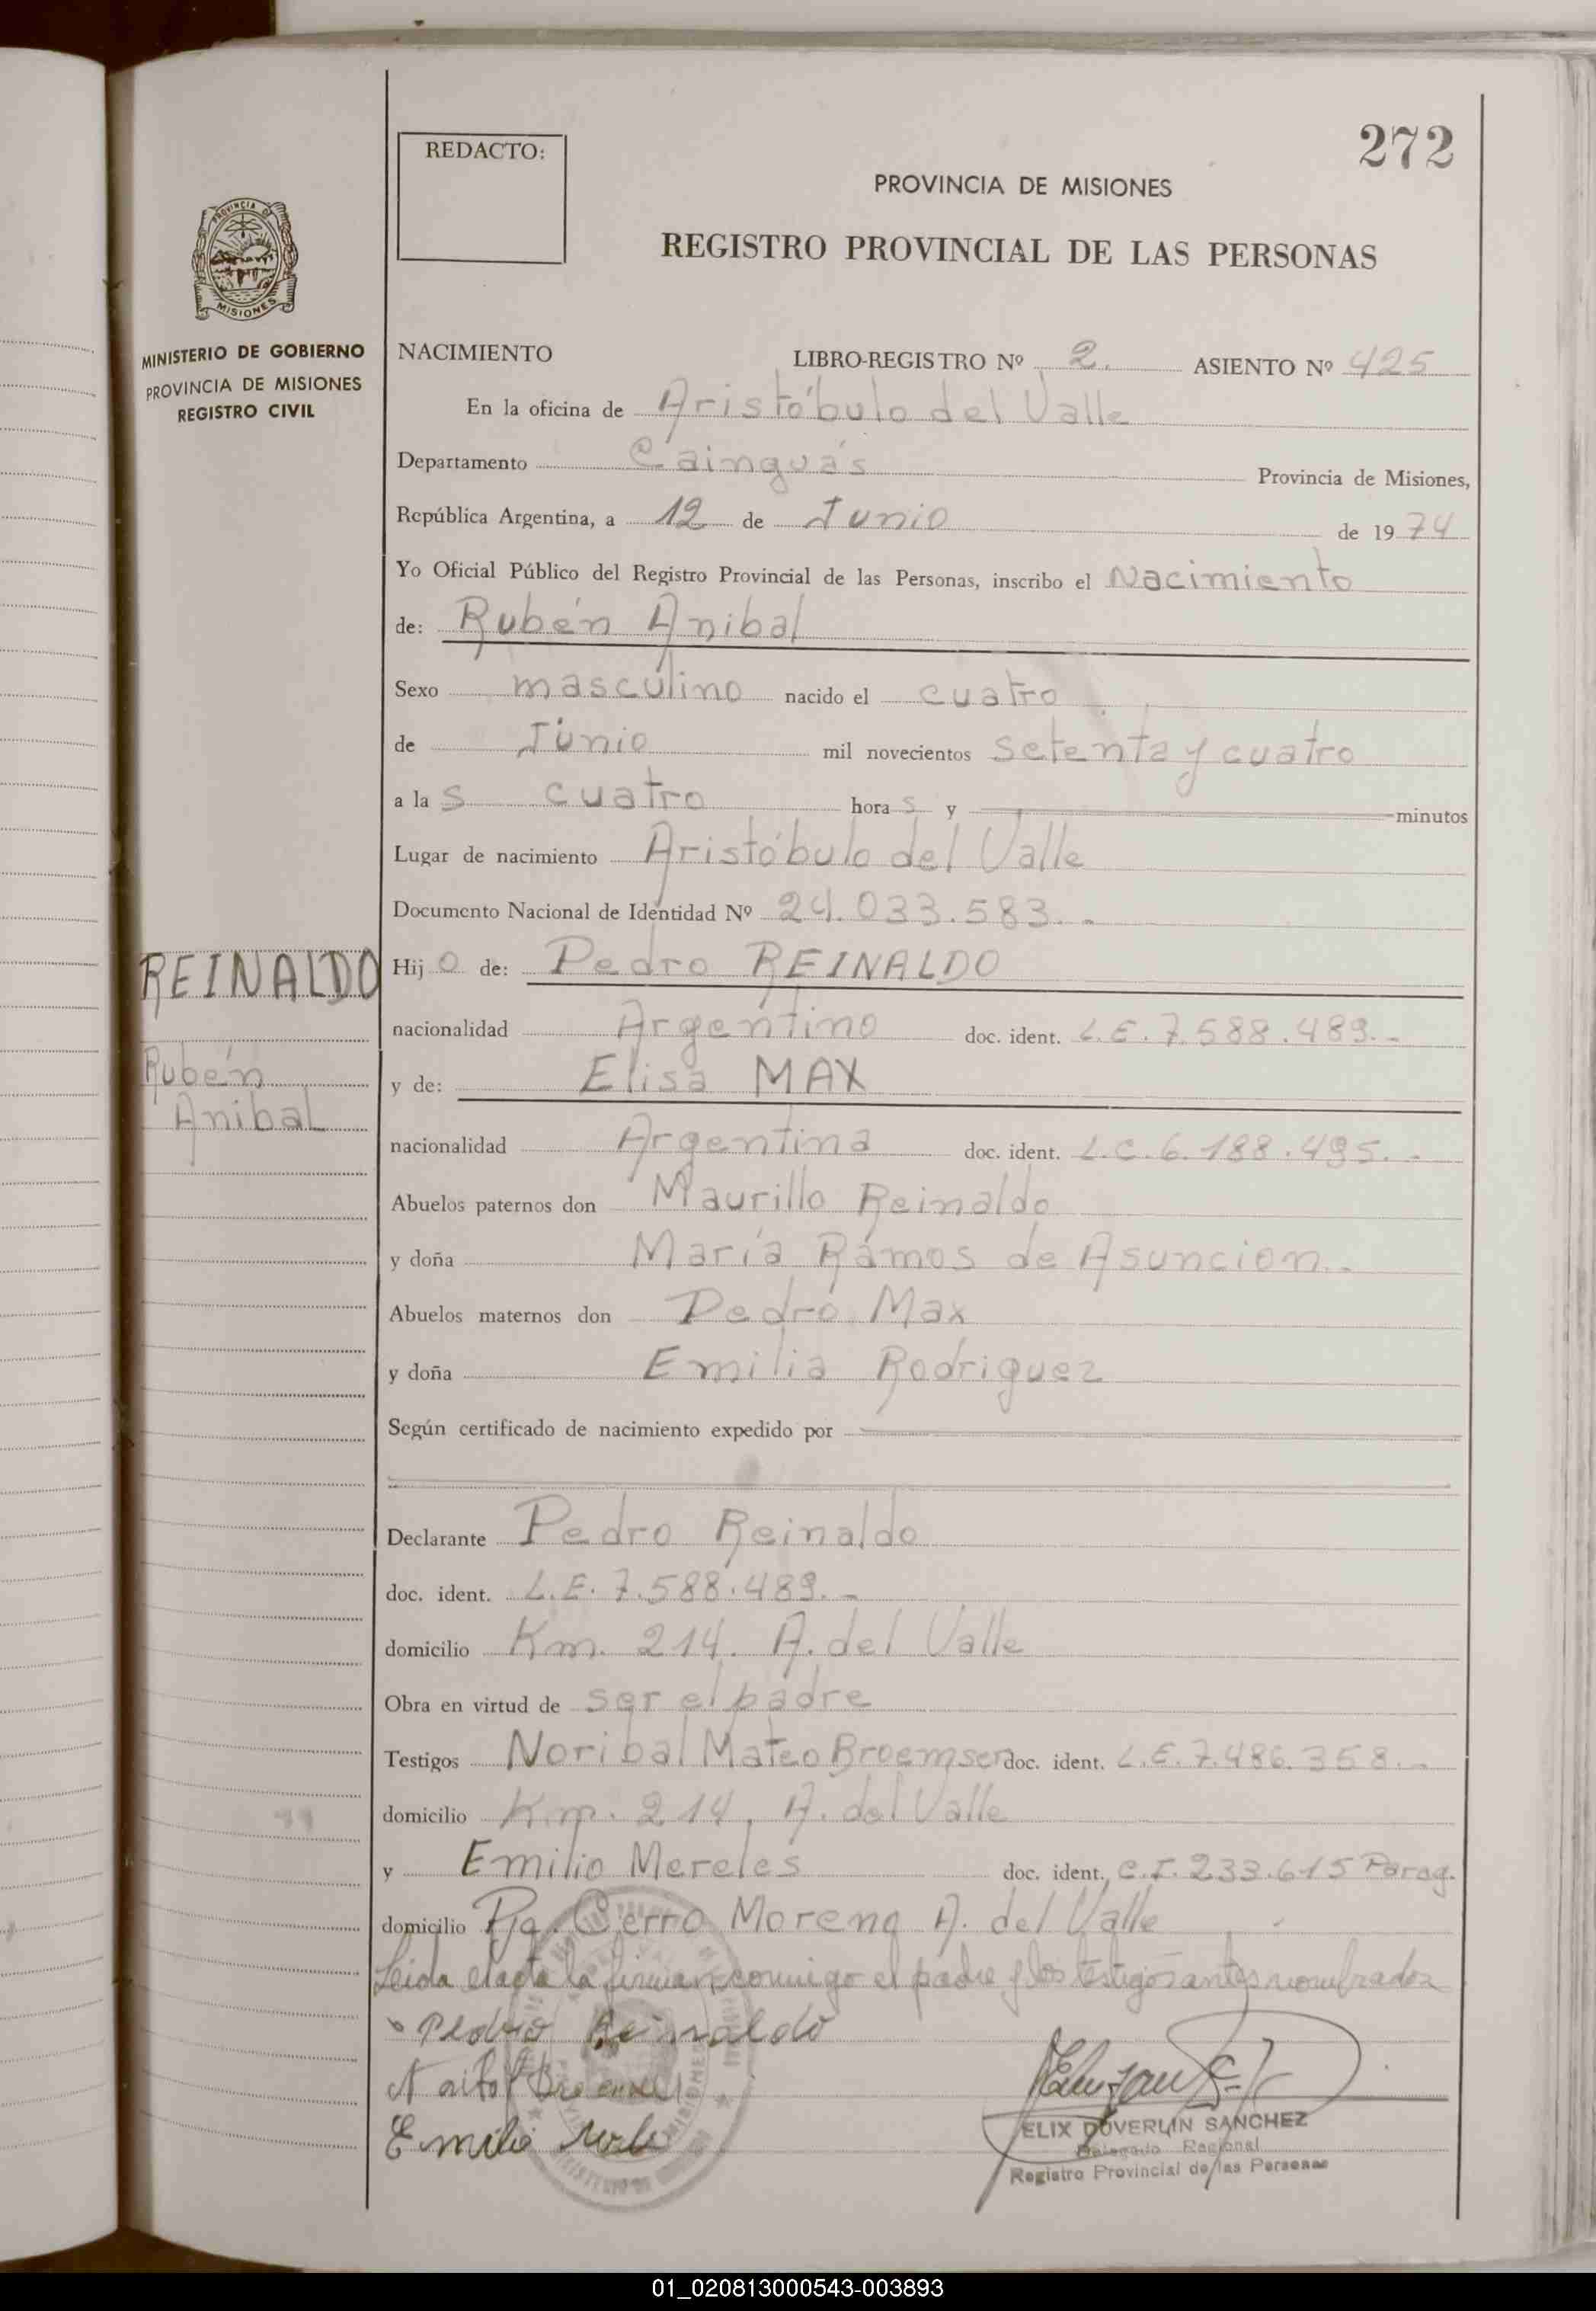 272
REDACTO:
PROVINCIA DE MISIONES
REGISTRO PROVINCIAL DE LAS PERSONAS
PROVINCIA D
MISIONES
MINISTERIO DE GOBIERNO
PROVINCIA DE MISIONES
REGISTRO CIVIL
NACIMIENTO LIBRO-REGISTRO Nº 2. ASIENTO Nº 425
En la oficina de Aristóbulo del Valle
Departamento Cainguás Provincia de Misiones,
República Argentina, a 12 de Junio de 1974
Yo Oficial Público del Registro Provincial de las Personas, inscribo el Nacimiento
de: Rubén Anibal
Sexo masculino nacido el cuatro
de Junio mil novecientos setenta y cuatro
a las cuatro horas y minutos
Lugar de nacimiento Aristóbulo del Valle
Documento Nacional de Identidad Nº 24.033.583.-
REINALDO
Rubén
Anibal
Hijo de: Pedro REINALDO
nacionalidad Argentino doc. ident. L.E. 7.588.489.-
y de: Elisa MAX
nacionalidad Argentina doc. ident. L.C. 6.188.495.-
Abuelos paternos don Maurillo Reinaldo
y doña María Rámos de Asuncion.-
Abuelos maternos don Pedro Max
y doña Emilia Rodriguez
Según certificado de nacimiento expedido por
Declarante Pedro Reinaldo
doc. ident. L.E. 7.588.489.-
domicilio Km. 214. A. del Valle
Obra en virtud de ser el padre
Testigos Noribal Mateo Broemser doc. ident. L.E. 7.486.358.-
domicilio Km. 214, A. del Valle
y Emilio Mereles doc. ident. C.I. 233.615 Parag.
domicilio Pje. Cerro Moreno A. del Valle
Leida el acta la firman conmigo el padre y los testigos antes nombrados
Pedro Reinaldo
Emilio
ELIX DOVERLIN SANCHEZ
Delegado Regional
Registro Provincial de las Personas
01_020813000543-003893